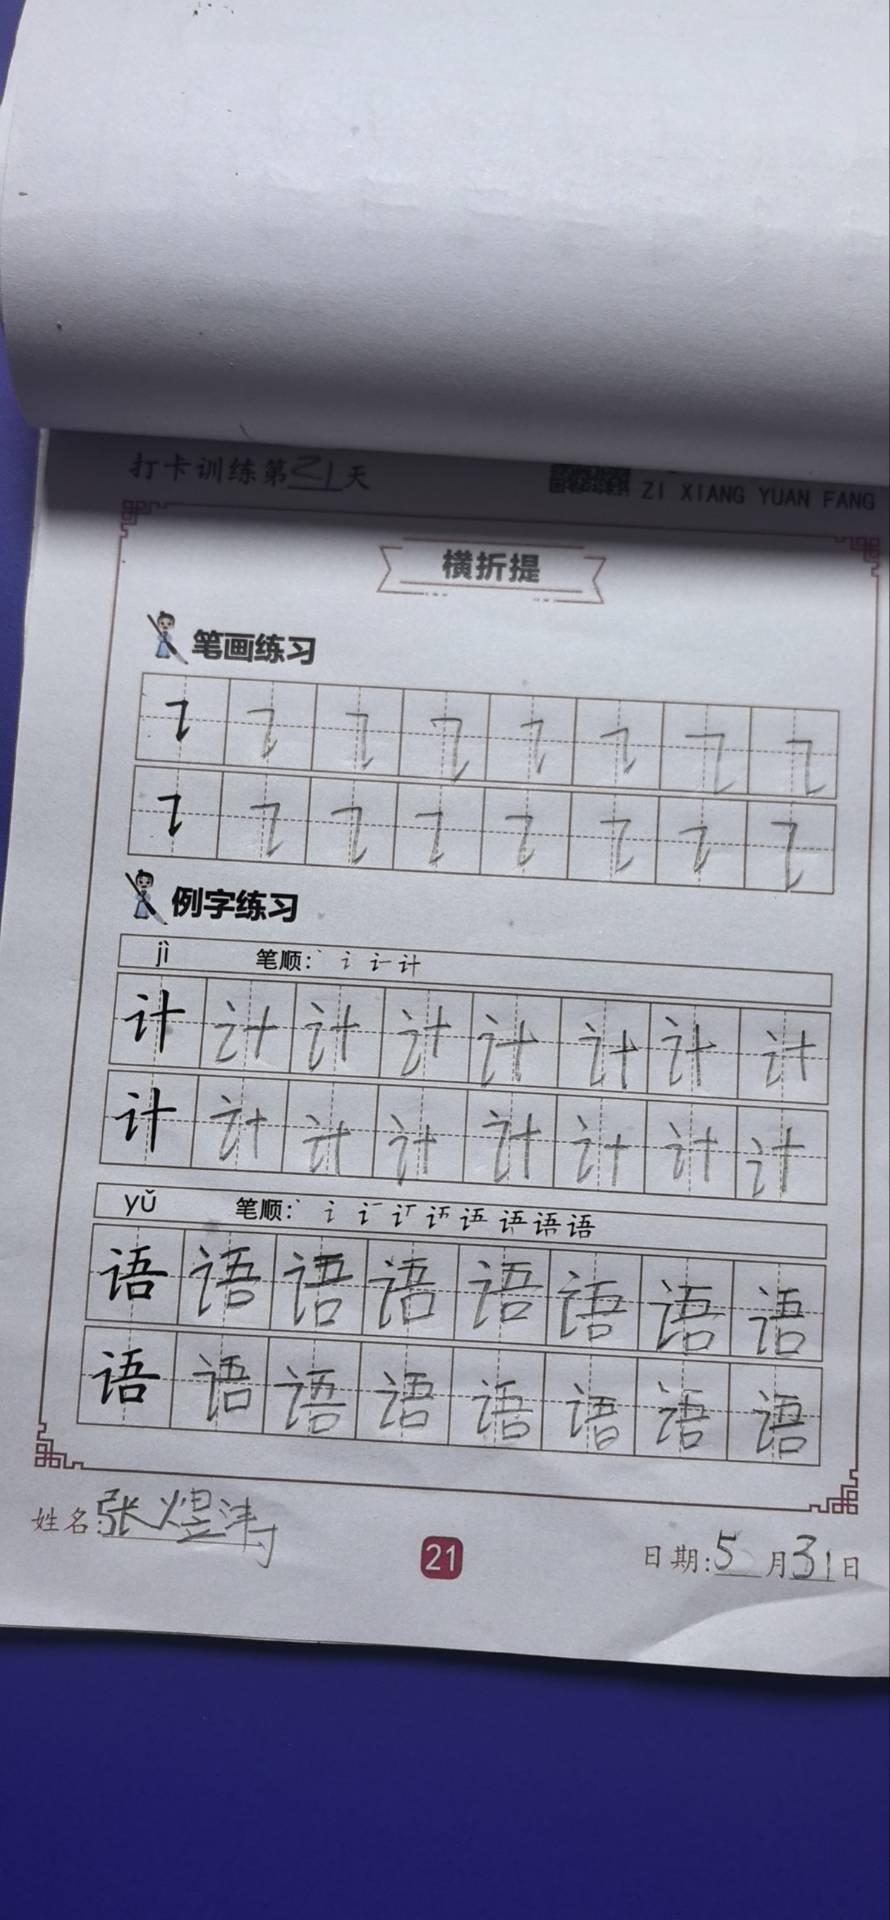 打卡训练第21天
ZI XIANG YUAN FANG
横折提
笔画练习
例字练习
jì 笔顺: 丶 讠 计
计 计 计 计 计 计 计 计
计 计 计 计 计 计 计 计
yǔ 笔顺: 丶 讠 语
语 语 语 语 语 语 语 语
语 语 语 语 语 语 语 语
姓名:张煜涛
21
日期:5月31日